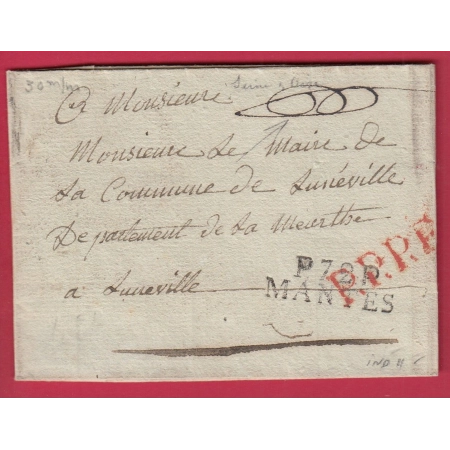 30 m/m
Seine & Oise
A Monsieur
Monsieur Le Maire de
La Commune de Lunéville
Departement de La Meurthe
a Luneville
P78P
MANTES
P.P.P.P.
IND 11